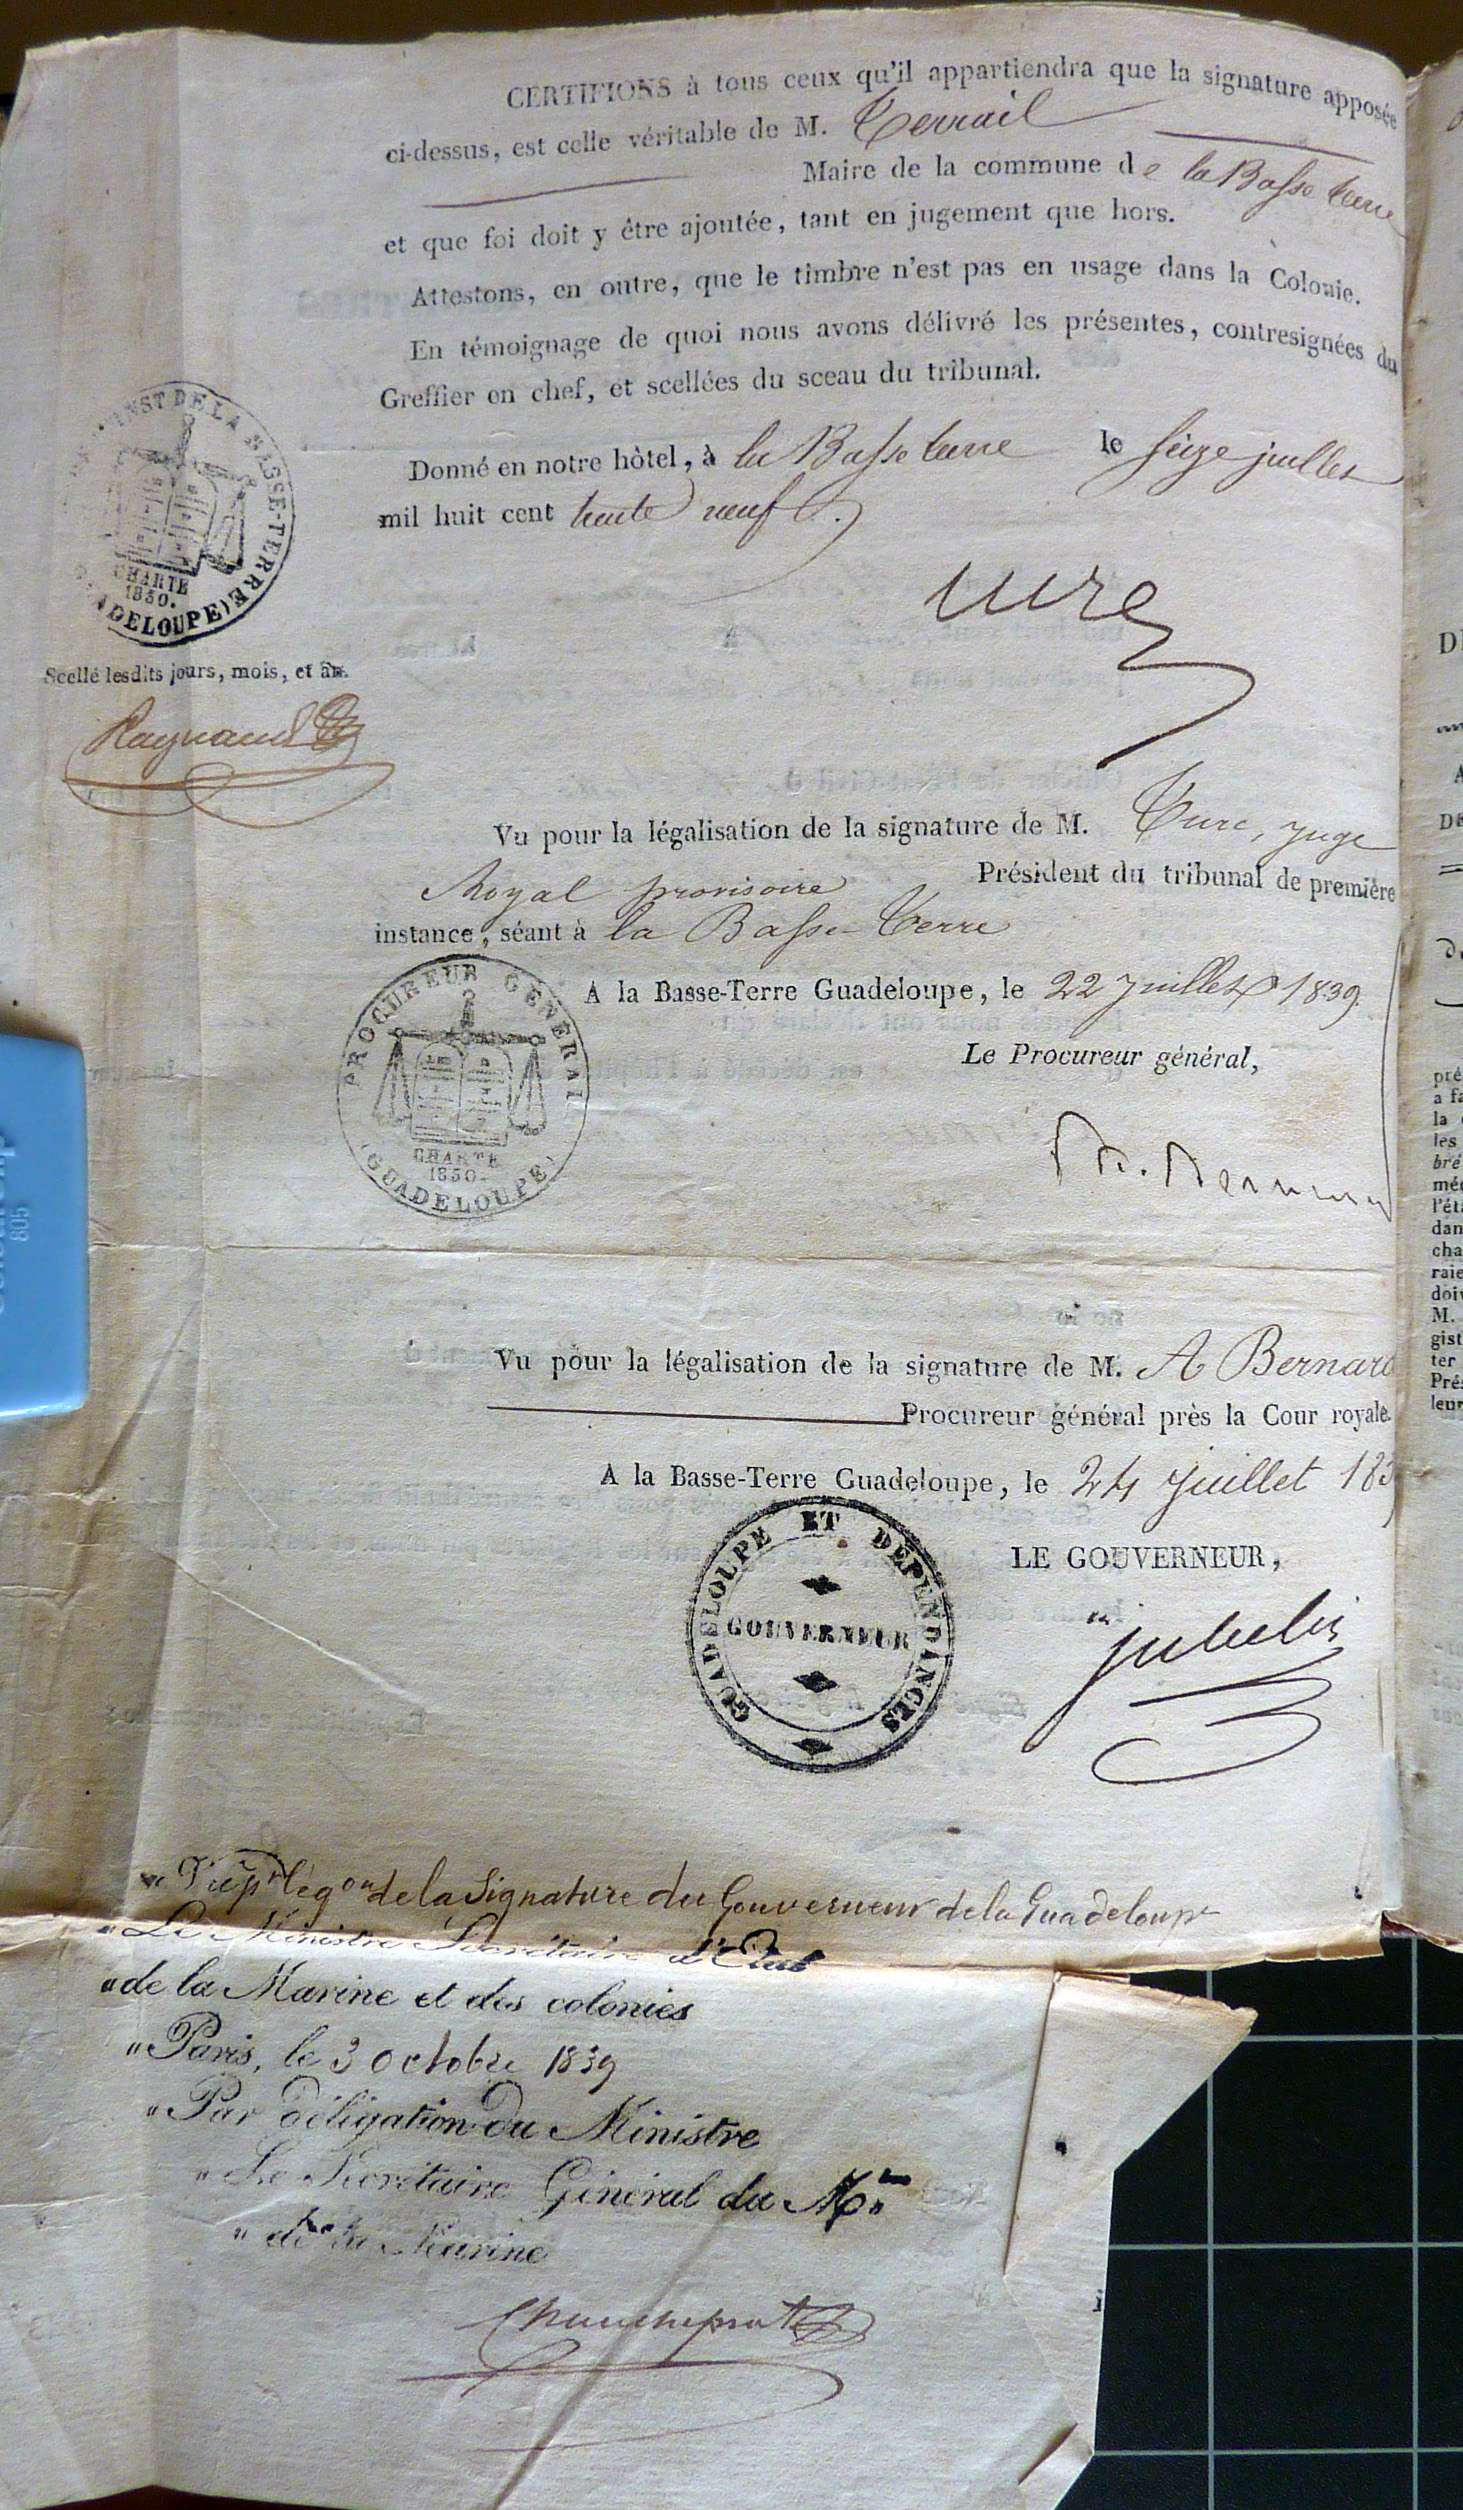 CERTIFIONS à tous ceux qu'il appartiendra que la signature apposée
ci-dessus, est celle véritable de M. Terrail
Maire de la commune de la Basse terre
et que foi doit y être ajoutée, tant en jugement que hors.
Attestons, en outre, que le timbre n'est pas en usage dans la Colonie.
En témoignage de quoi nous avons délivré les présentes, contresignées du
Greffier en chef, et scellées du sceau du tribunal.
INST DE LA BASSE-TERRE
CHARTE
1830.
DELOUPE)
Donné en notre hôtel, à la Basse terre le seize juillet
mil huit cent trente neuf.
Turc
Scellé lesdits jours, mois, et an.
Raynaud
Vu pour la légalisation de la signature de M. Turc, Juge
Royal provisoire Président du tribunal de première
instance, séant à la Basse-Terre
A la Basse-Terre Guadeloupe, le 22 Juillet 1839.
PROCUREUR GÉNÉRAL
CHARTE
1830.
(GUADELOUPE)
Le Procureur général,
Vu pour la légalisation de la signature de M. A Bernard
Procureur général près la Cour royale.
A la Basse-Terre Guadeloupe, le 24 Juillet 183
GUADELOUPE ET DÉPENDANCES
GOUVERNEUR
LE GOUVERNEUR,
Jubelin
" Vu pr légon de la Signature du Gouverneur de la Guadeloupe
" Le Ministre Secrétaire d'Etat
" de la Marine et des colonies
" Paris, le 3 octobre 1839
" Par délégation du Ministre
" Le Secrétaire Général du Mère
" de la Marine
Chaucheprat
805